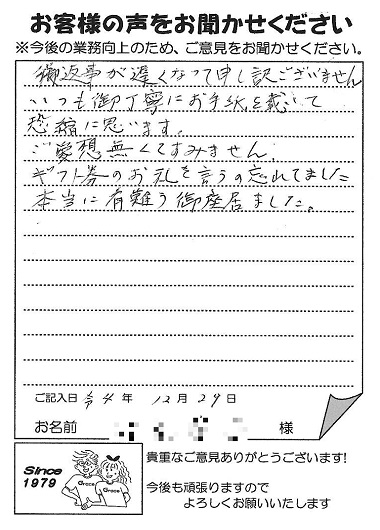 お客様の声をお聞かせください
※今後の業務向上のため、ご意見をお聞かせください。
御返事が遅くなって申し訳ございません
いつも御丁寧にお手紙を戴いて
恐縮に思います。
ご愛想無くてすみません。
ギフト券のお礼を言うの忘れてました
本当に有難う御座居ました。
ご記入日 令4年 12月29日
お名前 様
Since 1979
Grace Grace
貴重なご意見ありがとうございます!
今後も頑張りますので
よろしくお願いいたします